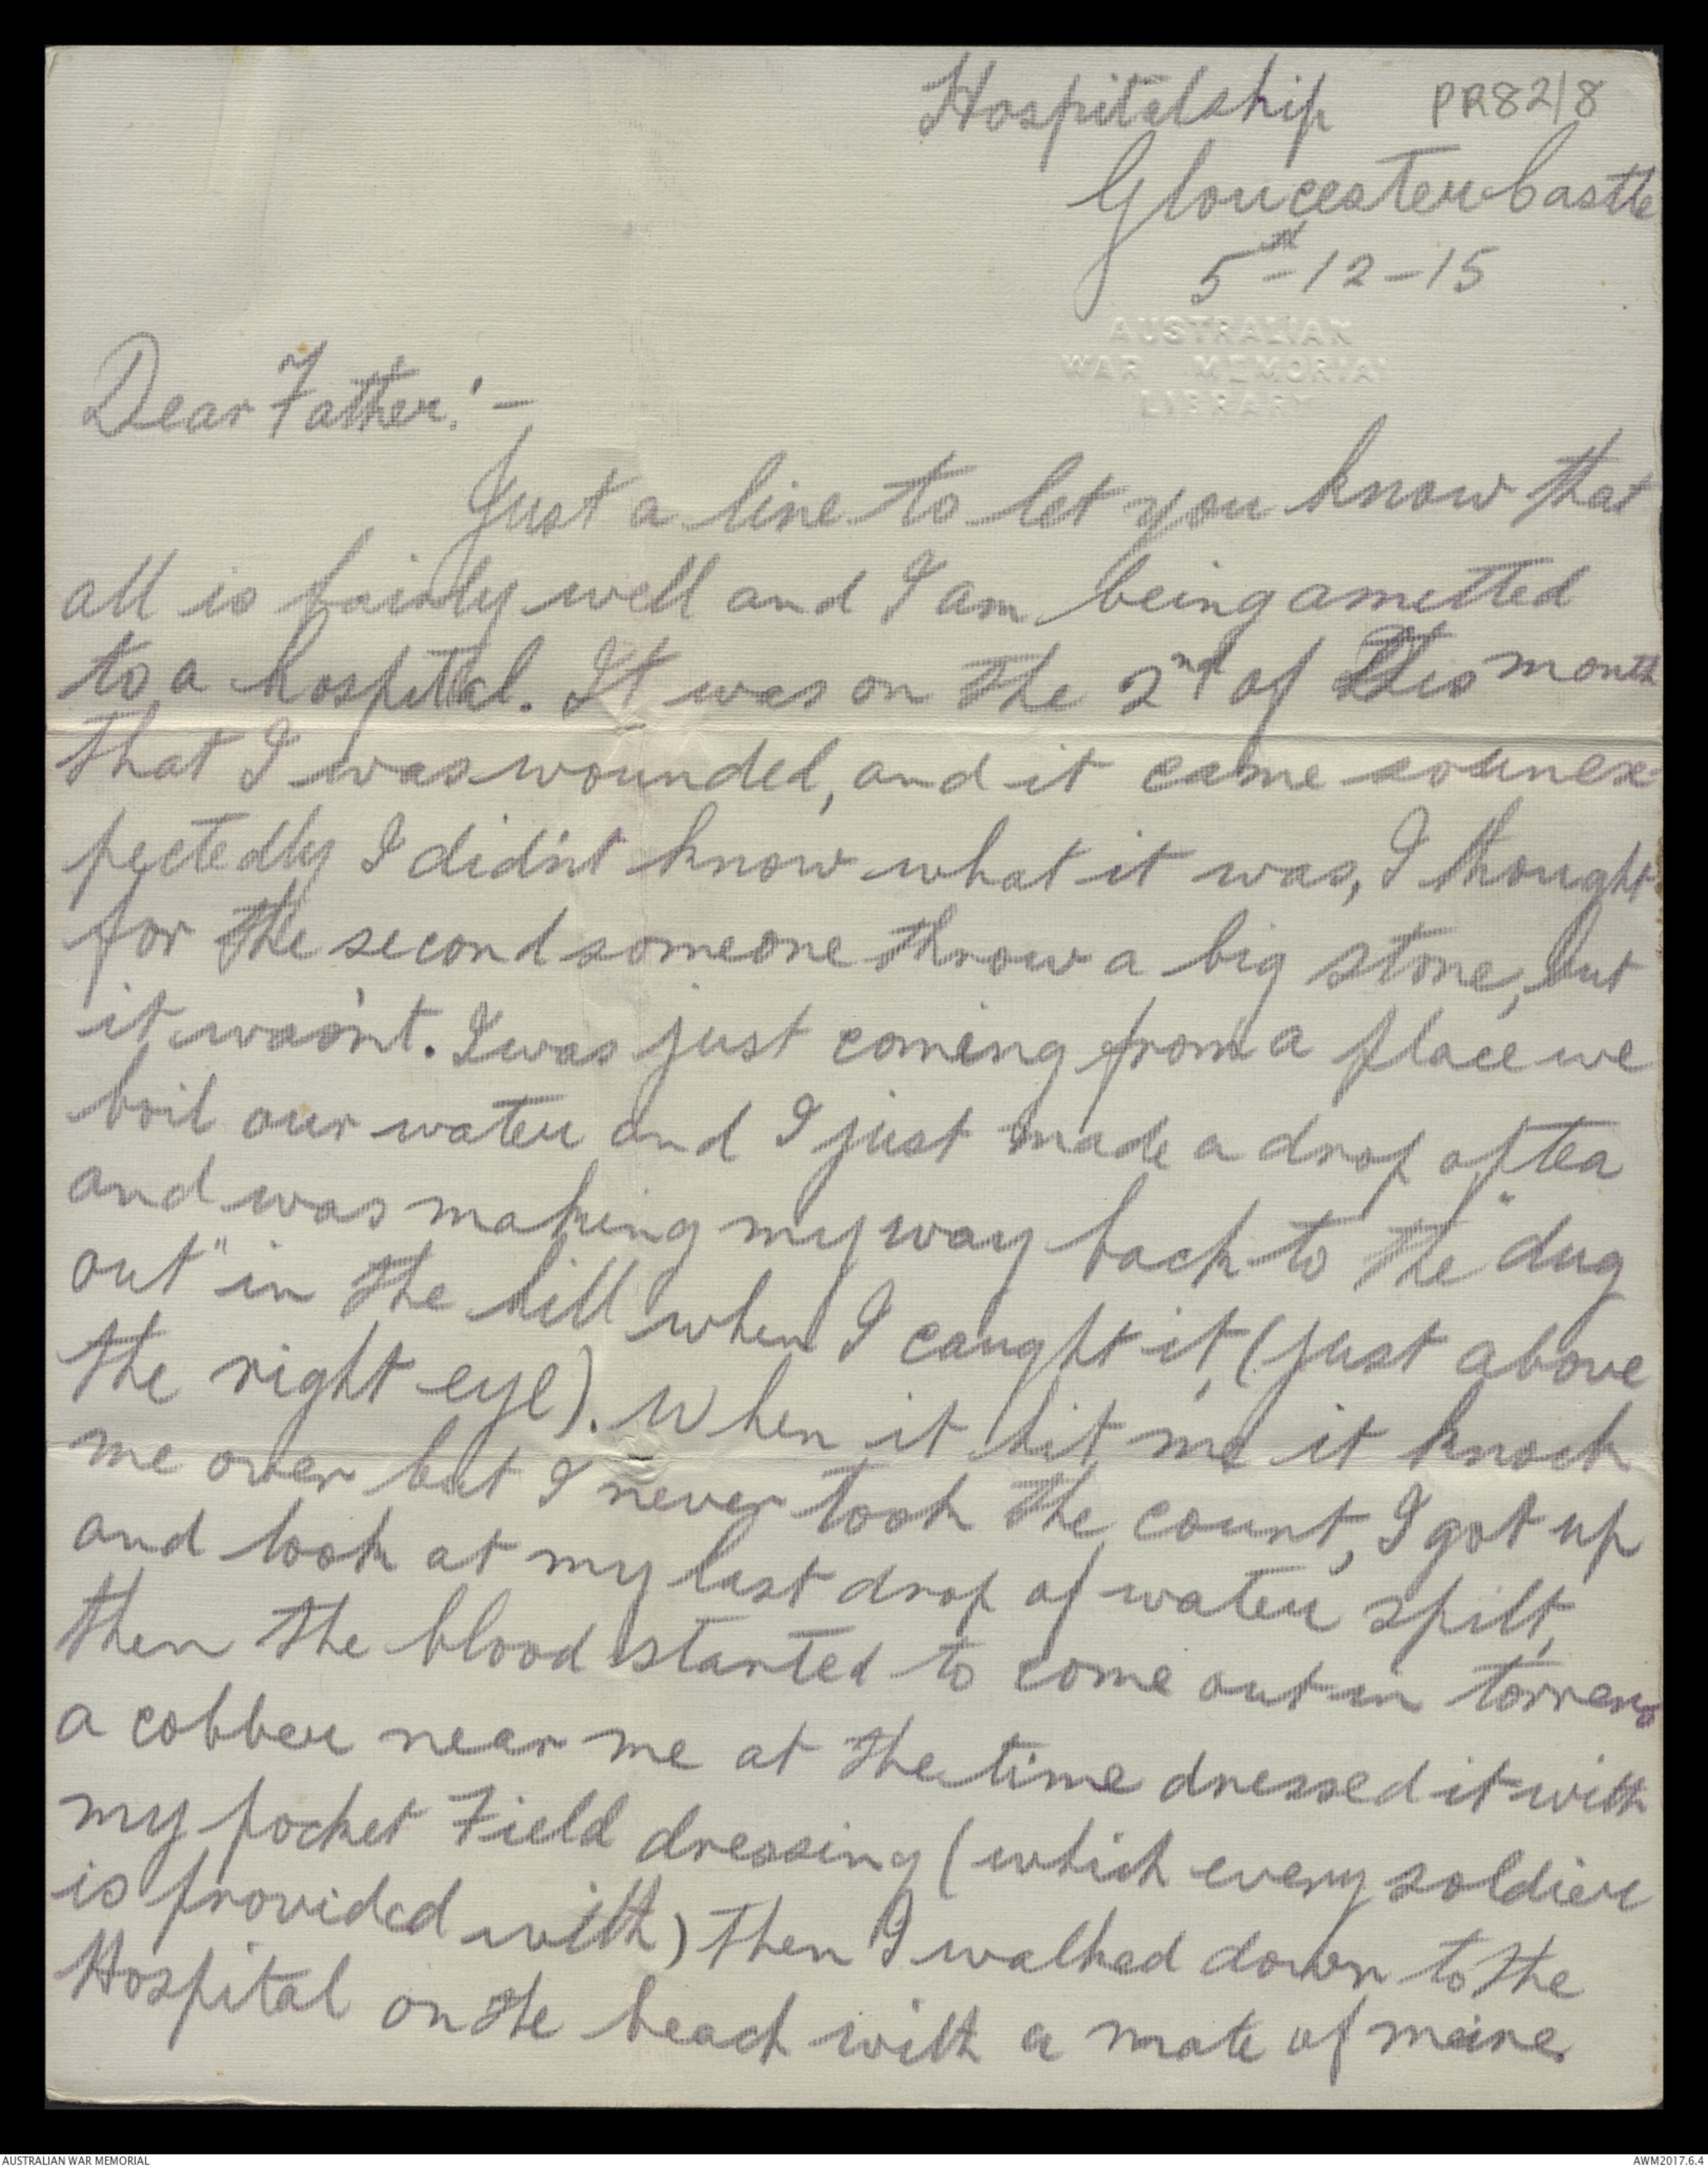 Hospitalship PR82/8
Gloucester Castle
5th-12-15
AUSTRALIAN
WAR MEMORIAL
LIBRARY
Dear Father:-
Just a line to let you know that
all is fairly well and I am being ametted
to a hospital. It was on the 2nd of this month
that I was wounded, and it came so unex-
pectedly I didn't know what it was, I thought
for the second someone throw a big stone, but
it wasn't. I was just coming from a place we
boil our water and I just made a drop of tea
and was making my way back to the "dug
out" in the hill when I caught it, (just above
the right eye). When it hit me it knock
me over but I never took the count, I got up
and look at my last drop of water spilt,
then the blood started to come out in torrens
a cobber near me at the time dressed it with
my pocket Field dressing (which every soldier
is provided with) then I walked down to the
Hospital on the beach with a mate of meine.
AUSTRALIAN WAR MEMORIAL AWM2017.6.4